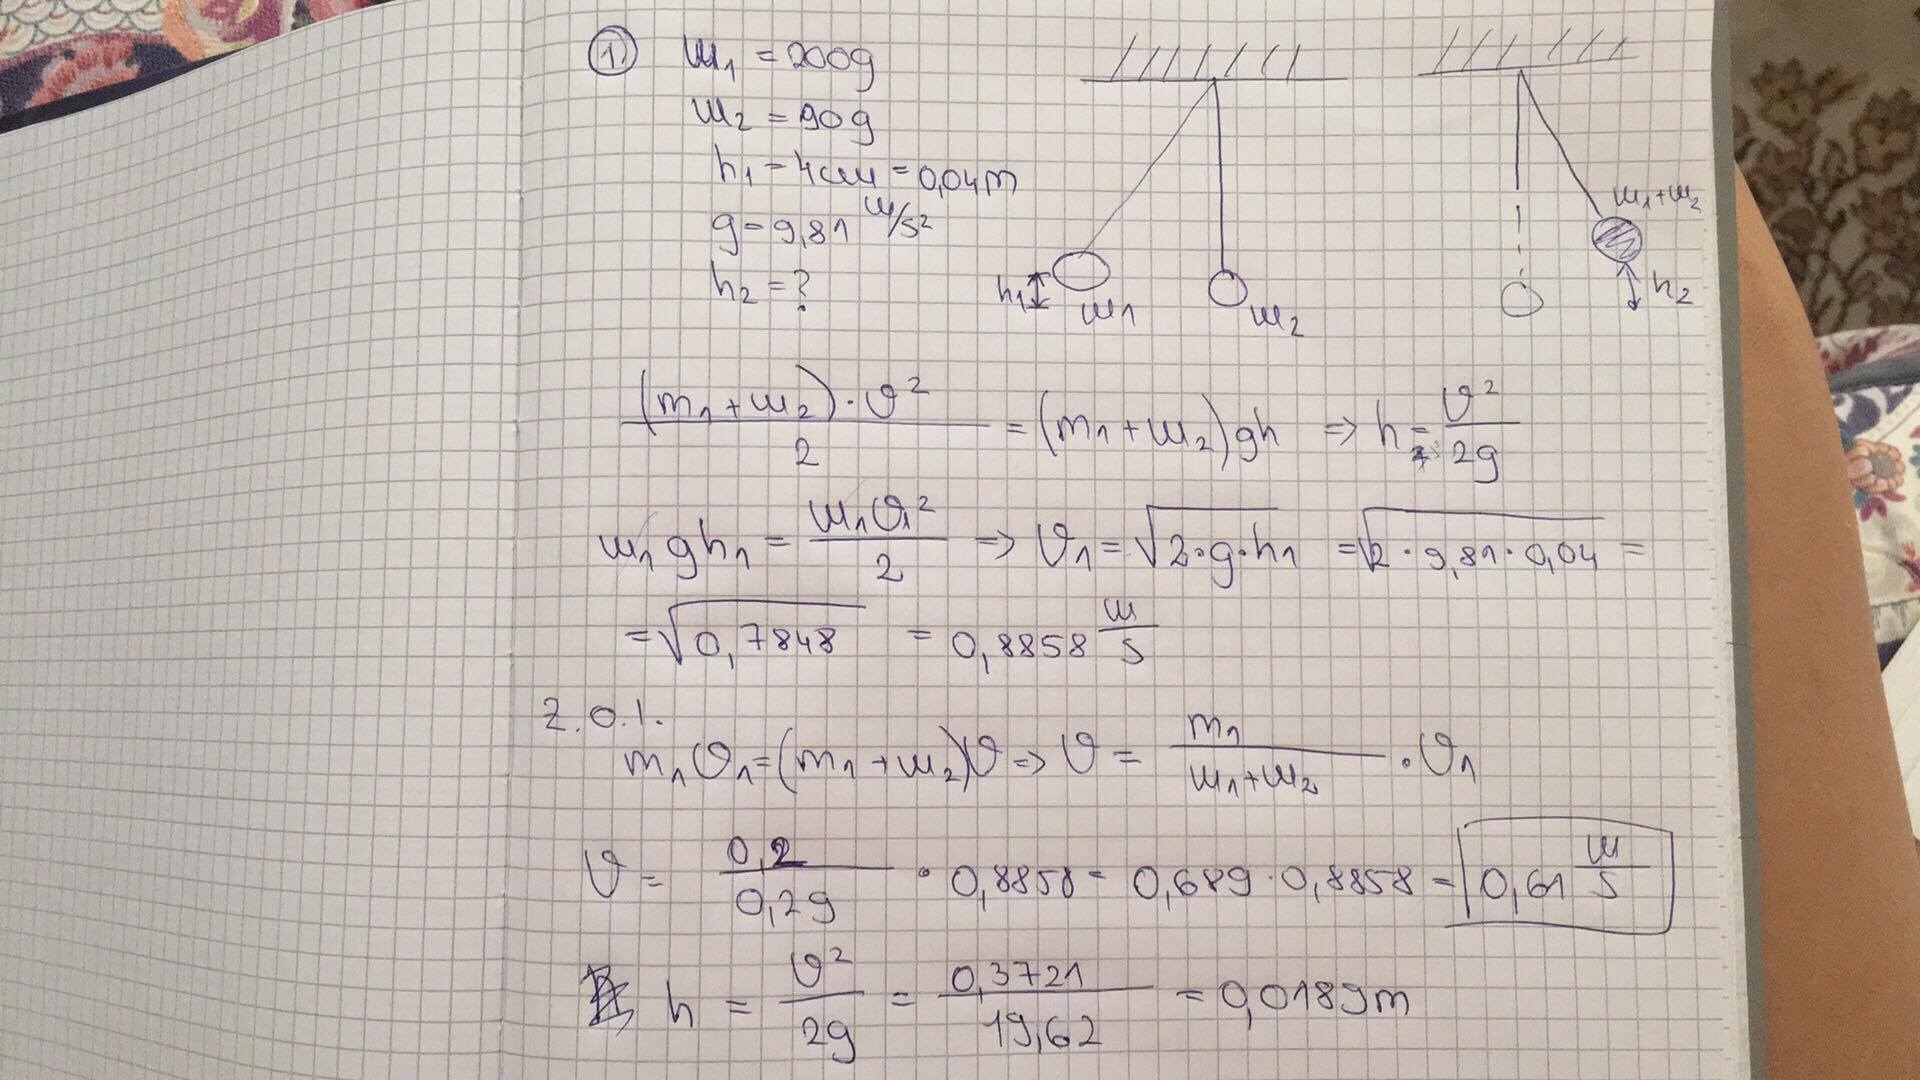 1) m₁ = 200g
m₂ = 90g
h₁ = 4cm = 0,04m
g = 9,81 m/s²
h₂ = ?
h₁ m₁ m₂
m₁+m₂
h₂
(m₁+m₂)·v²/2 = (m₁+m₂)gh => h = v²/2g
m₁gh₁ = m₁v₁²/2 => v₁ = √(2·g·h₁) = √(2·9,81·0,04) =
= √(0,7848) = 0,8858 m/s
Z.O.I.
m₁v₁ = (m₁+m₂)v => v = m₁/(m₁+m₂) · v₁
v = 0,2/0,29 · 0,8858 = 0,689 · 0,8858 = 0,61 m/s
h = v²/2g = 0,3721/19,62 = 0,0189m